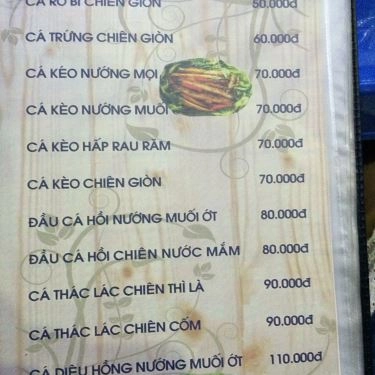 CÁ RÔ BI CHIÊN GIÒN 50.000đ
CÁ TRỨNG CHIÊN GIÒN 60.000đ
CÁ KÉO NƯỚNG MỌI 70.000đ
CÁ KÈO NƯỚNG MUỐI 70.000đ
CÁ KÈO HẤP RAU RĂM 70.000đ
CÁ KÈO CHIÊN GIÒN 70.000đ
ĐẦU CÁ HỒI NƯỚNG MUỐI ỚT 80.000đ
ĐẦU CÁ HỒI CHIÊN NƯỚC MẮM 80.000đ
CÁ THÁC LÁC CHIÊN THÌ LÀ 90.000đ
CÁ THÁC LÁC CHIÊN CỐM 90.000đ
CÁ DIÊU HỒNG NƯỚNG MUỐI ỚT 110.000đ